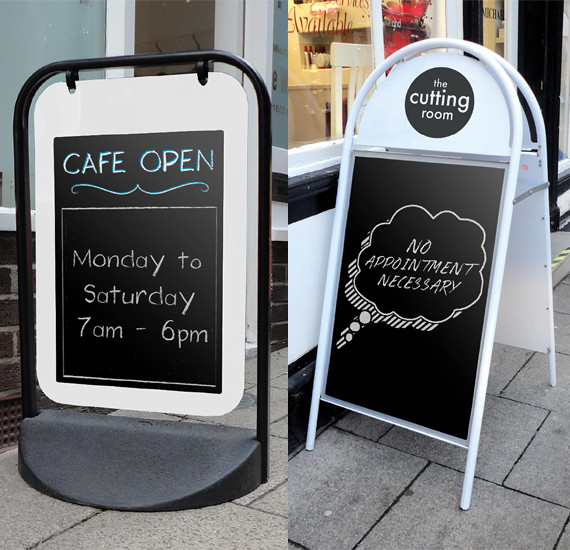 CAFE OPEN
Monday to
Saturday
7am - 6pm
Available
and
MICHAEL
the
cutting
room
NO
APPOINTMENT
NECESSARY